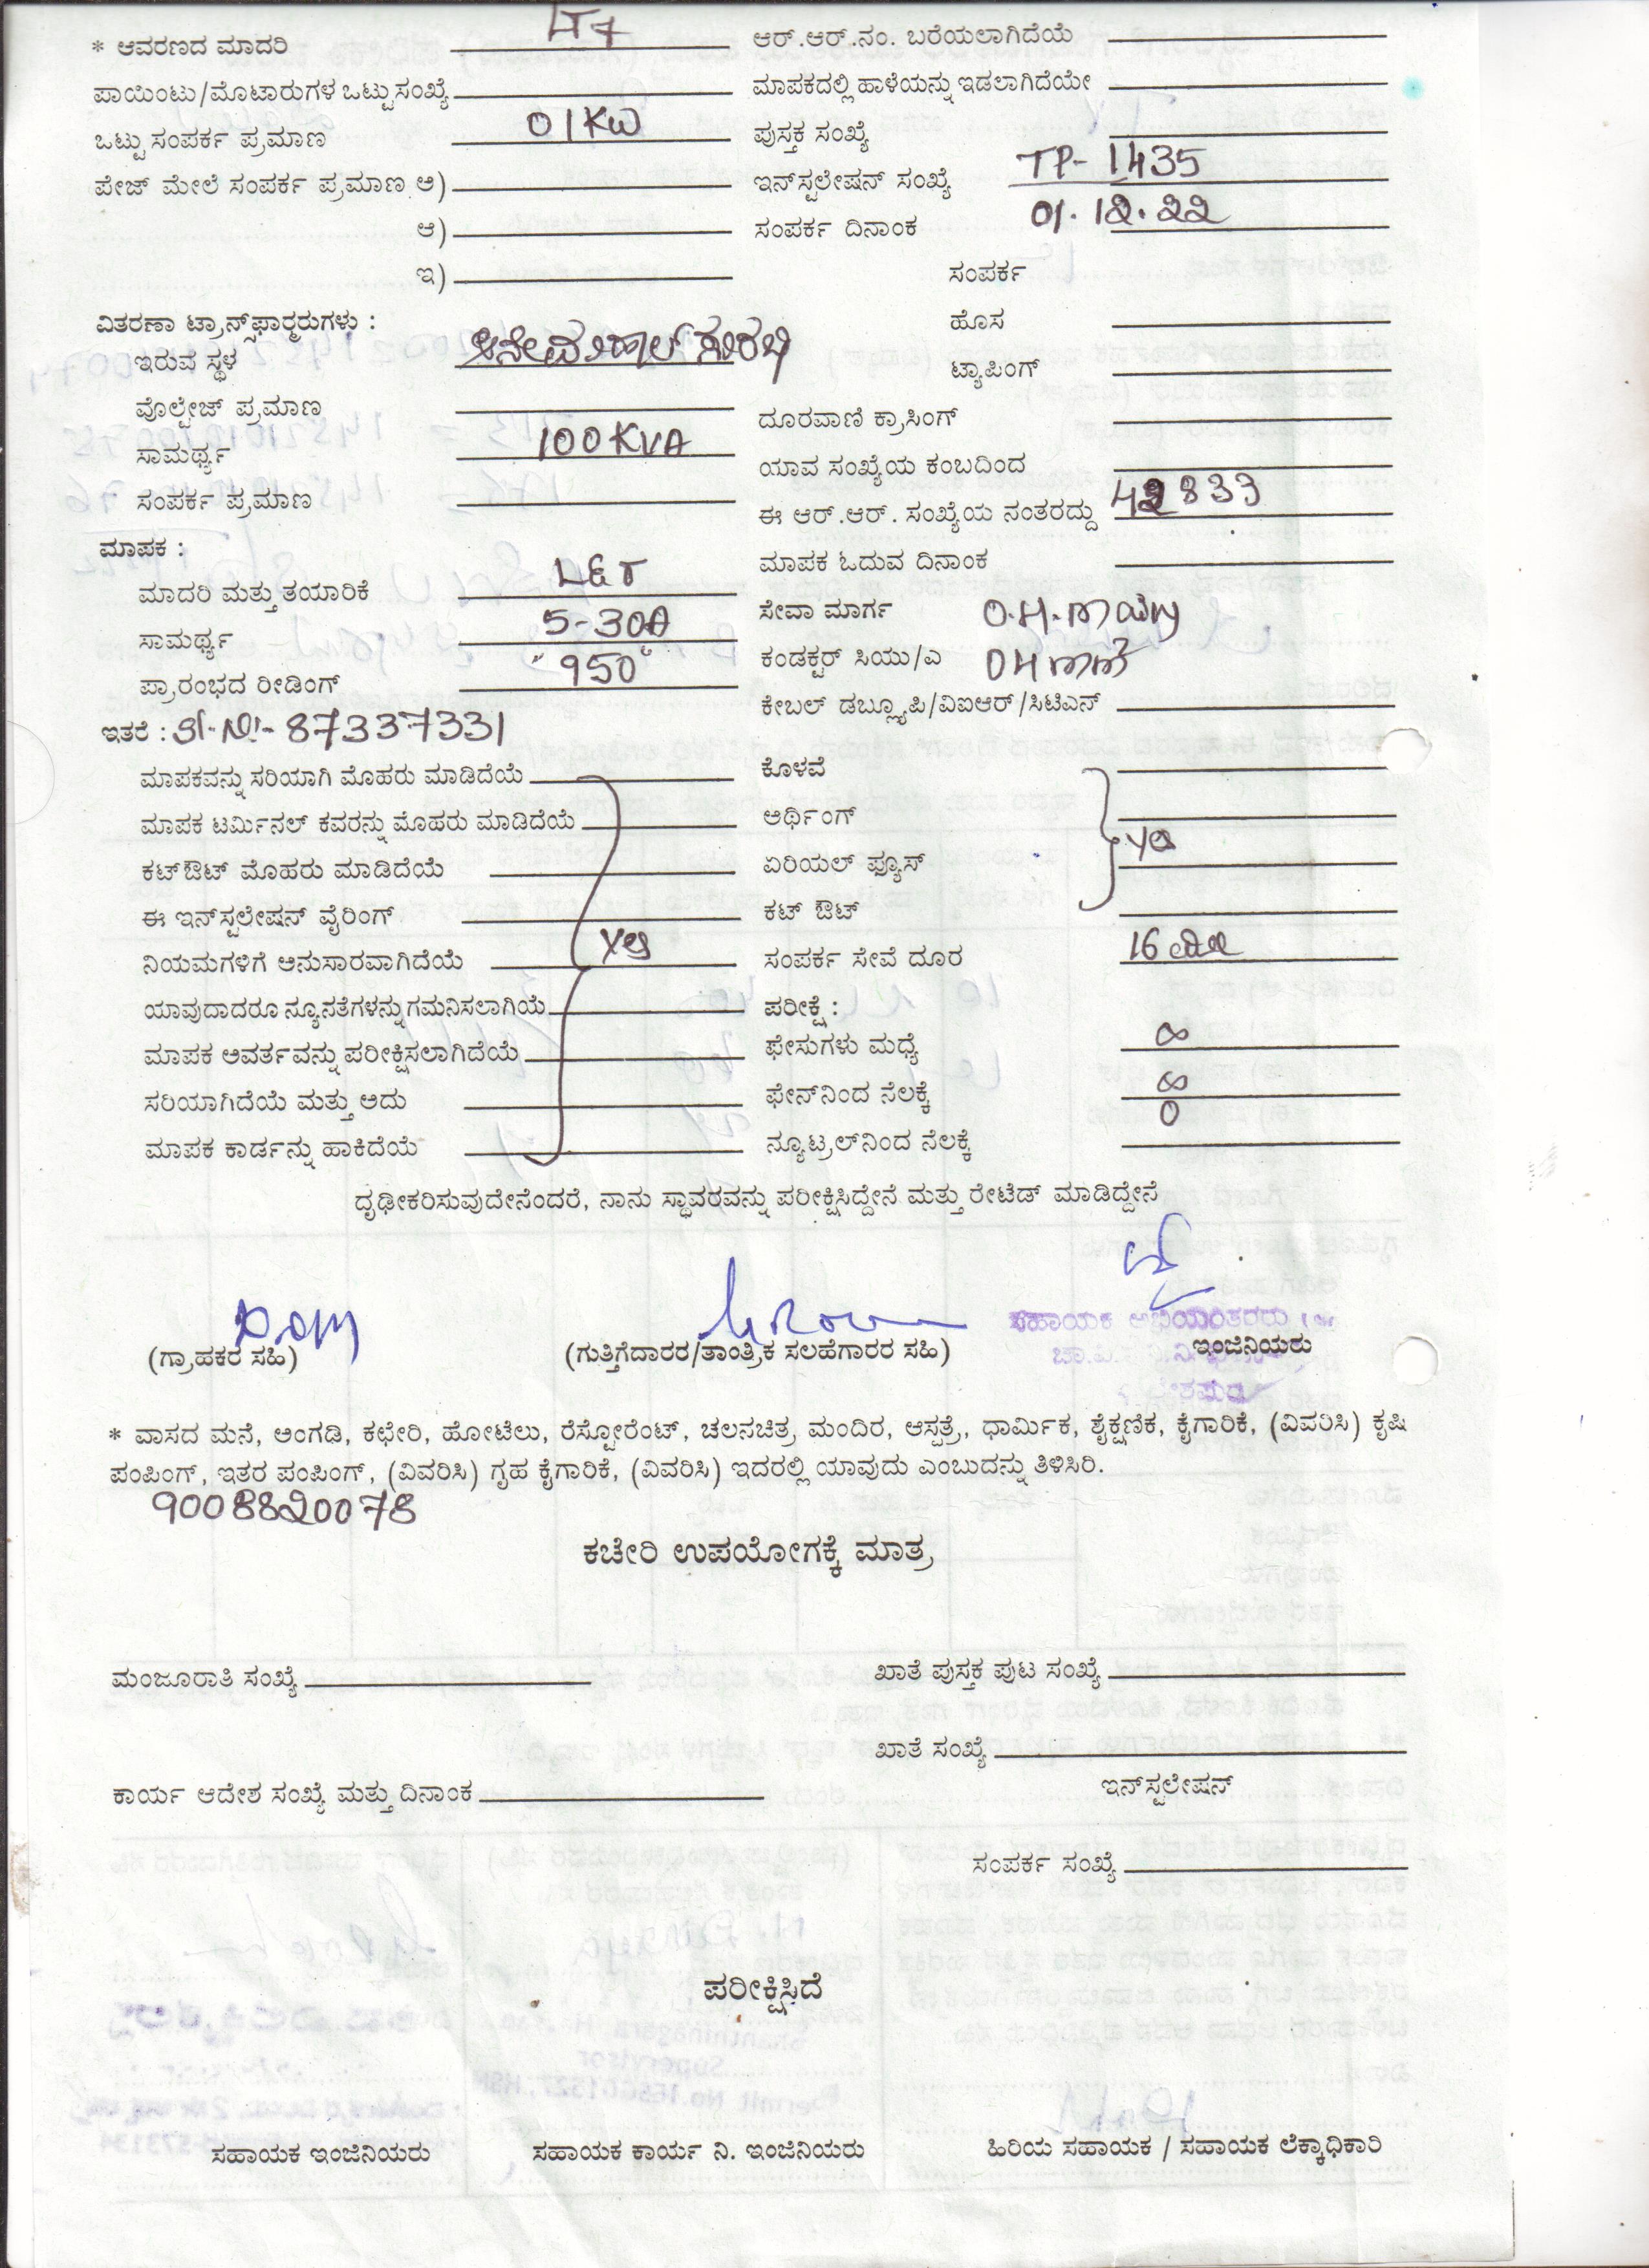 * ಆವರಣದ ಮಾದರಿ LT7 ಆರ್.ಆರ್.ನಂ. ಬರೆಯಲಾಗಿದೆಯೆ
ಪಾಯಿಂಟು/ಮೊಟಾರುಗಳ ಒಟ್ಟುಸಂಖ್ಯೆ ಮಾಪಕದಲ್ಲಿ ಹಾಳೆಯನ್ನು ಇಡಲಾಗಿದೆಯೇ
ಒಟ್ಟು ಸಂಪರ್ಕ ಪ್ರಮಾಣ 01KW ಪುಸ್ತಕ ಸಂಖ್ಯೆ
ಪೇಜ್ ಮೇಲೆ ಸಂಪರ್ಕ ಪ್ರಮಾಣ ಅ) ಇನ್‌ಸ್ಟಲೇಷನ್ ಸಂಖ್ಯೆ TP-1435
ಆ) ಸಂಪರ್ಕ ದಿನಾಂಕ 01.12.22
ಇ) ಸಂಪರ್ಕ
ವಿತರಣಾ ಟ್ರಾನ್ಸ್‌ಫಾರ್‍ಮರುಗಳು : ಹೊಸ
ಇರುವ ಸ್ಥಳ ಟ್ಯಾಪಿಂಗ್
ವೊಲ್ಟೇಜ್ ಪ್ರಮಾಣ ದೂರವಾಣಿ ಕ್ರಾಸಿಂಗ್
ಸಾಮರ್ಥ್ಯ 100KVA ಯಾವ ಸಂಖ್ಯೆಯ ಕಂಬದಿಂದ
ಸಂಪರ್ಕ ಪ್ರಮಾಣ ಈ ಆರ್.ಆರ್. ಸಂಖ್ಯೆಯ ನಂತರದ್ದು 42833
ಮಾಪಕ : ಮಾಪಕ ಓದುವ ದಿನಾಂಕ
ಮಾದರಿ ಮತ್ತು ತಯಾರಿಕೆ L&T ಸೇವಾ ಮಾರ್ಗ O.H.
ಸಾಮರ್ಥ್ಯ 5-30A ಕಂಡಕ್ಟರ್ ಸಿಯು/ಎ
ಪ್ರಾರಂಭದ ರೀಡಿಂಗ್ "950" ಕೇಬಲ್ ಡಬ್ಲ್ಯೂಪಿ/ವಿಐಆರ್/ಸಿಟಿಎನ್
ಇತರೆ : Sl.No:- 87337331
ಮಾಪಕವನ್ನು ಸರಿಯಾಗಿ ಮೊಹರು ಮಾಡಿದೆಯೆ ಕೊಳವೆ
ಮಾಪಕ ಟರ್ಮಿನಲ್ ಕವರನ್ನು ಮೊಹರು ಮಾಡಿದೆಯೆ ಅರ್ಥಿಂಗ್
ಕಟ್‌ಔಟ್ ಮೊಹರು ಮಾಡಿದೆಯೆ ಏರಿಯಲ್ ಫ್ಯೂಸ್
ಈ ಇನ್‌ಸ್ಟಲೇಷನ್ ವೈರಿಂಗ್ ಕಟ್ ಔಟ್
ನಿಯಮಗಳಿಗೆ ಅನುಸಾರವಾಗಿದೆಯೆ Yes ಸಂಪರ್ಕ ಸೇವೆ ದೂರ 16
ಯಾವುದಾದರೂ ನ್ಯೂನತೆಗಳನ್ನು ಗಮನಿಸಲಾಗಿಯೆ ಪರೀಕ್ಷೆ :
ಮಾಪಕ ಅವರ್ತವನ್ನು ಪರೀಕ್ಷಿಸಲಾಗಿದೆಯೆ ಫೇಸುಗಳು ಮಧ್ಯೆ ∞
ಸರಿಯಾಗಿದೆಯೆ ಮತ್ತು ಅದು ಫೇನ್‌ನಿಂದ ನೆಲಕ್ಕೆ ∞
ಮಾಪಕ ಕಾರ್ಡನ್ನು ಹಾಕಿದೆಯೆ ನ್ಯೂಟ್ರಲ್‌ನಿಂದ ನೆಲಕ್ಕೆ 0
ದೃಢೀಕರಿಸುವುದೇನೆಂದರೆ, ನಾನು ಸ್ಥಾವರವನ್ನು ಪರೀಕ್ಷಿಸಿದ್ದೇನೆ ಮತ್ತು ರೇಟೆಡ್ ಮಾಡಿದ್ದೇನೆ
ಸಹಾಯಕ ಅಭಿಯಂತರರು
(ಗ್ರಾಹಕರ ಸಹಿ) (ಗುತ್ತಿಗೆದಾರರ/ತಾಂತ್ರಿಕ ಸಲಹೆಗಾರರ ಸಹಿ) ಇಂಜಿನಿಯರು
* ವಾಸದ ಮನೆ, ಅಂಗಡಿ, ಕಛೇರಿ, ಹೋಟೆಲು, ರೆಸ್ಟೋರೆಂಟ್, ಚಲನಚಿತ್ರ ಮಂದಿರ, ಆಸ್ಪತ್ರೆ, ಧಾರ್ಮಿಕ, ಶೈಕ್ಷಣಿಕ, ಕೈಗಾರಿಕೆ, (ವಿವರಿಸಿ) ಕೃಷಿ
ಪಂಪಿಂಗ್, ಇತರ ಪಂಪಿಂಗ್, (ವಿವರಿಸಿ) ಗೃಹ ಕೈಗಾರಿಕೆ, (ವಿವರಿಸಿ) ಇದರಲ್ಲಿ ಯಾವುದು ಎಂಬುದನ್ನು ತಿಳಿಸಿರಿ.
9008820078
ಕಚೇರಿ ಉಪಯೋಗಕ್ಕೆ ಮಾತ್ರ
ಮಂಜೂರಾತಿ ಸಂಖ್ಯೆ ಖಾತೆ ಪುಸ್ತಕ ಪುಟ ಸಂಖ್ಯೆ
ಖಾತೆ ಸಂಖ್ಯೆ
ಕಾರ್ಯ ಆದೇಶ ಸಂಖ್ಯೆ ಮತ್ತು ದಿನಾಂಕ ಇನ್‌ಸ್ಟಲೇಷನ್
ಸಂಪರ್ಕ ಸಂಖ್ಯೆ
ಪರೀಕ್ಷಿಸಿದೆ
ಸಹಾಯಕ ಇಂಜಿನಿಯರು ಸಹಾಯಕ ಕಾರ್ಯ ನಿ. ಇಂಜಿನಿಯರು ಹಿರಿಯ ಸಹಾಯಕ / ಸಹಾಯಕ ಲೆಕ್ಕಾಧಿಕಾರಿ